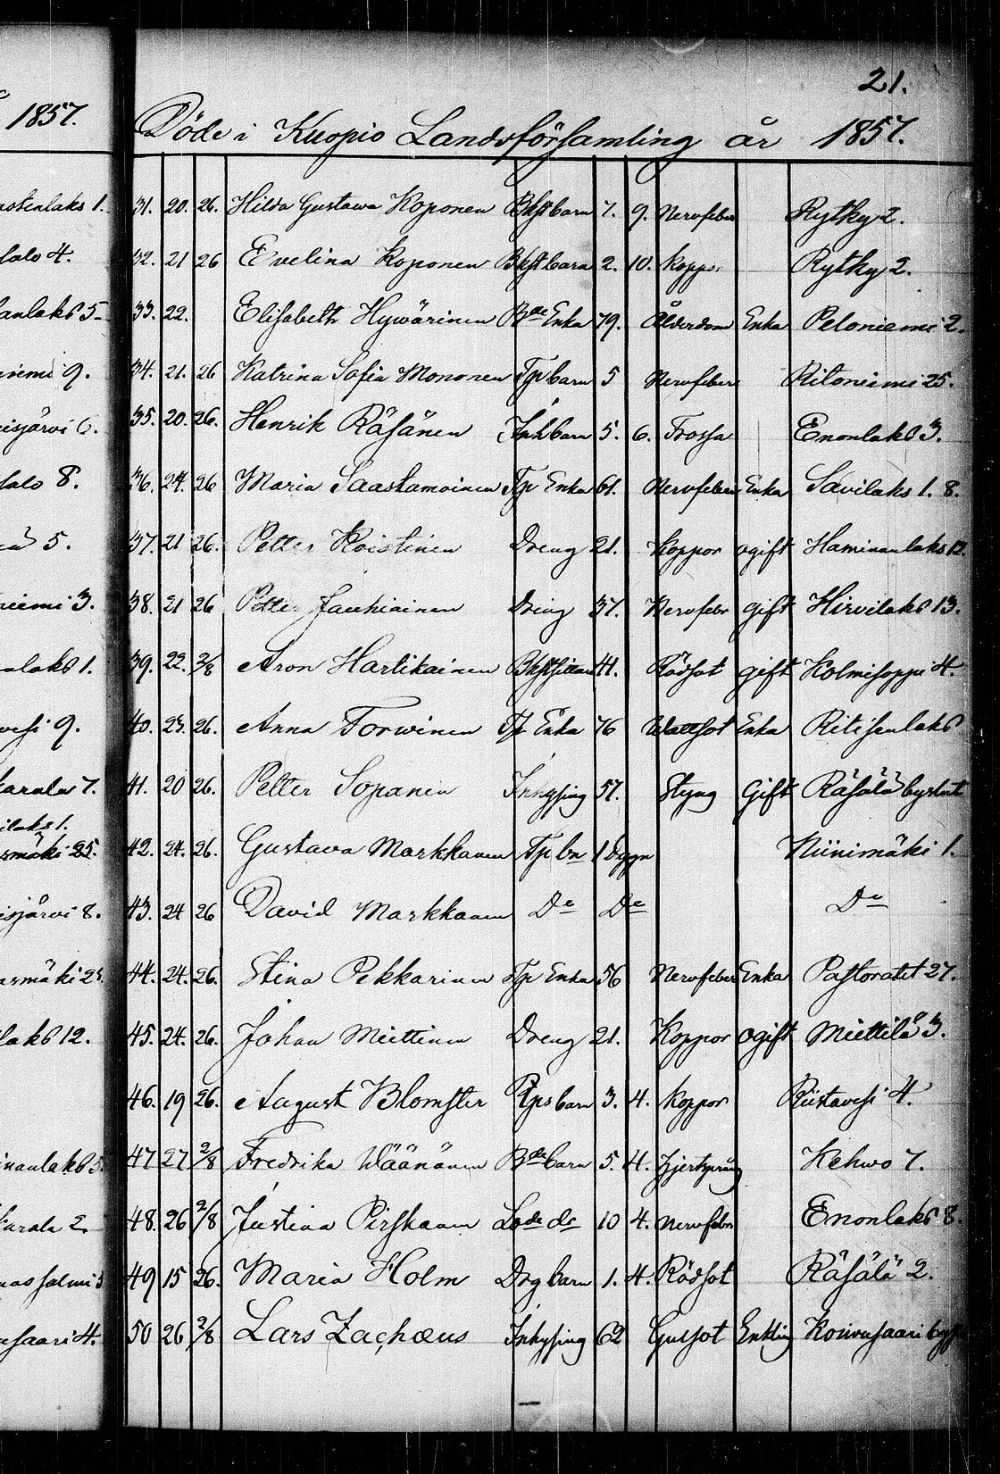 21.
1857.
Döde i Kuopio Landsförsamling år 1857.
31. 20. 26. Hilda Gustava Koponen Bkst barn 7. 9. Nervfeber Rytky 2.
32. 21 26 Evelina Koponen Bkst barn 2. 10. Koppor Rytky 2.
33. 22. Elisabeth Hywärinen Bde Enka 79. Ålderdom Enka Peloniemi 2.
34. 21. 26 Katrina Sofia Mononen Tp barn 5 Nervfeber Ritoniemi 25.
35. 20. 26. Henrik Räsänen Inh barn 5. 6. Frossa Enonlaks 3.
36. 24. 26 Maria Saastamoinen Tp Enka 61. Nervfeber Enka Savilaks 1. 8.
37. 21 26. Petter Koistinen Dreng 21. Koppor ogift Haminanlaks 12.
38. 21 26 Petter Jauhiainen Dreng 37. Nervfebr gift Hirvilaks 13.
39. 22. 2/8 Aron Hartikainen Bkstsittare 41. Rödsot gift Kolmisoppi 4.
40. 23. 26. Anna Torwinen Tp Enka 76 Wattsot Enka Ritisenlaks
41. 20 26. Petter Sopanen Inhysing 57. Styng Gift Räsälä byslut
42. 24. 26. Gustava Markkanen Tp bn 1 Dygn Niinimäki 1.
43. 24 26 David Markkanen Do Do Do
44. 24. 26. Stina Pekkarinen Tp Enka 56 Nervfeber Enka Pastoratet 27.
45. 24. 26. Johan Miettinen Dreng 21. Koppor ogift Miettilä 3.
46. 19 26. August Blomster barn 3. 4. Koppor Riistavesi 4.
47 27 2/8 Fredrika Wäänänen Bde barn 5. 4. Kehwo 7.
48. 26 2/8 Justina Pirskanen do 10 4. Nervfebr Enonlaks 8.
49 15 26. Maria Holm Drg barn 1. 4. Rödsot Räsälä 2.
50 26 2/8 Lars Zachæus Inhysing 62 Gulsot Enkling Koivusaari